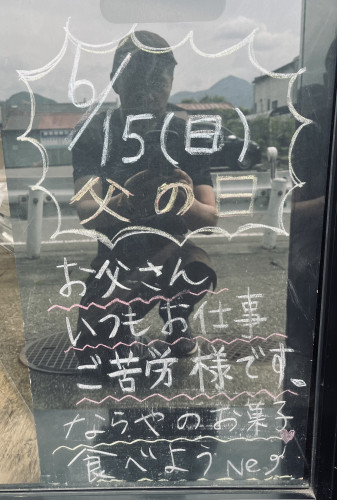 6/15(日)
父の日
お父さん
いつもお仕事
ご苦労様です
ならやのお菓子
食べようNeg